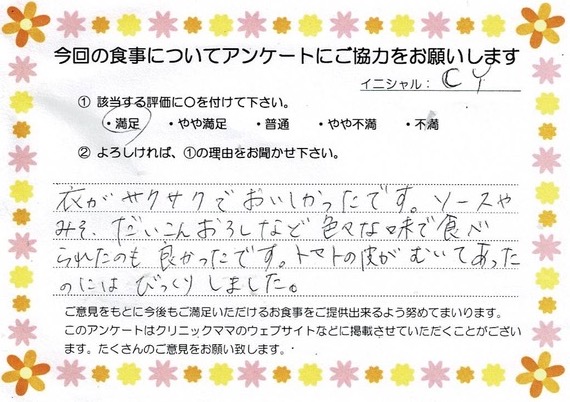 今回の食事についてアンケートにご協力をお願いします
イニシャル： C Y
① 該当する評価に○を付けて下さい。
・満足 ・やや満足 ・普通 ・やや不満 ・不満
② よろしければ、①の理由をお聞かせ下さい。
衣がサクサクでおいしかったです。ソースや
みそ、だいこんおろしなど色々な味で食べ
られたのも良かったです。トマトの皮がむいてあった
のにはびっくりしました。
ご意見をもとに今後もご満足いただけるお食事をご提供出来るよう努めてまいります。
このアンケートはクリニックママのウェブサイトなどに掲載させていただくことがござい
ます。たくさんのご意見をお願い致します。